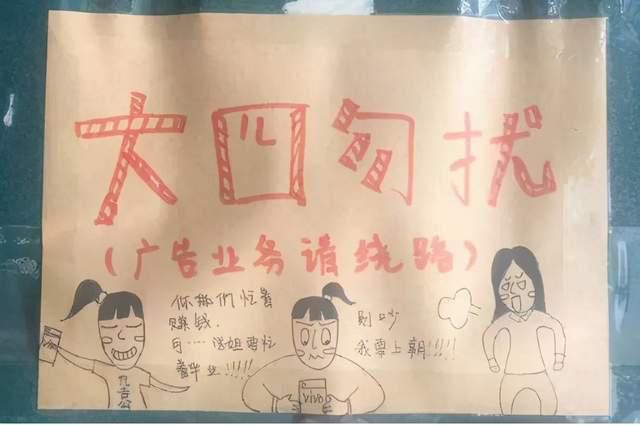 大四勿扰
(广告业务请绕路)
你都们忙着
赚钱.
可……姐要忙
着毕业!!!!!
别吵
我要上朝!!!!
九吉公
vivo